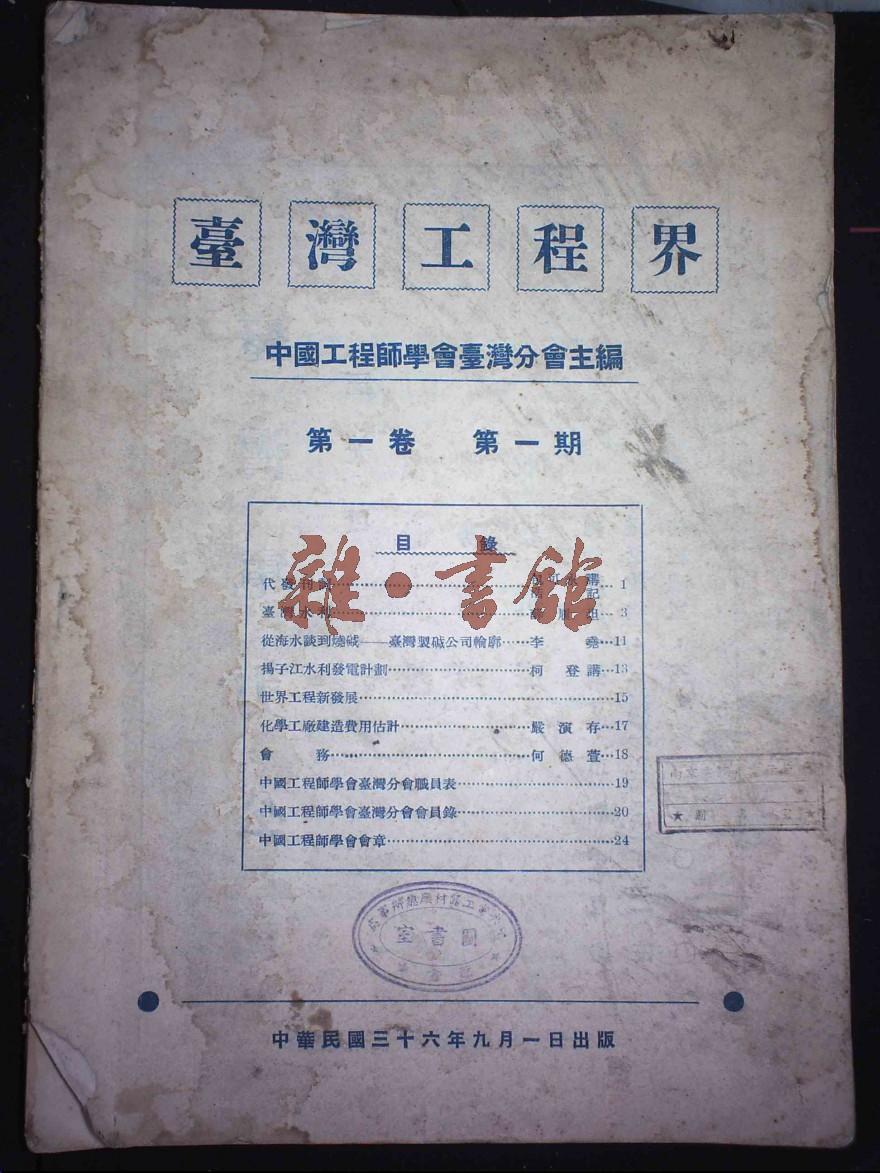 臺灣工程界
中國工程師學會臺灣分會主編
第一卷 第一期
目錄
代發刊詞……講記…1
臺灣水利……3
從海水談到燒碱——臺灣製碱公司輪廓……李堯…11
揚子江水利發電計劃……柯登講…13
世界工程新發展……15
化學工廠建造費用估計……嚴演存…17
會務……何德萱…18
中國工程師學會臺灣分會職員表……19
中國工程師學會臺灣分會會員錄……20
中國工程師學會會章……24
雜·書館
圖書室
中華民國三十六年九月一日出版